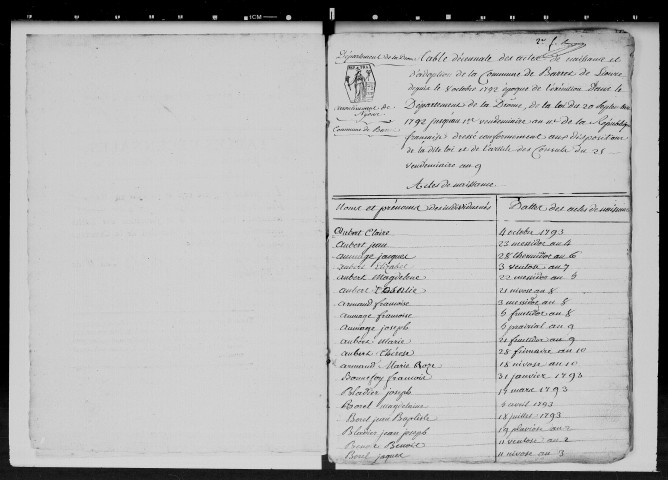 Département de la Drome
arrondissement de
Nyons
Commune de Barret
Table décennale des actes de naissance et
d'adoption de la Commune de Barret de Lioure
depuis le 8 octobre 1792 époque de l'exécution dans le
Département de la Drome, de la loi du 20 septembre
1792 jusqu'au 1er vendemiaire an 11 de la République
française dressé conformement aux dispositions
de la dite loi et de l'arrêté des Consuls du 25
vendemiaire an 9
Actes de naissance
Noms et prénoms des individus nés Dattes des actes de naissance
Aubert Claire 4 octobre 1793
aubert jean 23 messidor an 4
aumage jacques 28 thermidor an 6
aubert Elizabet 3 ventose an 7
aubert Magdeleine 22 messidor an 5
aubert Rosalie 21 nivose an 8
armand francoise 3 messidor an 8
aumage francoise 5 fruitidor an 8
aumage joseph 5 prairial an 9
aubert Marie 21 fruitidor an 9
aubert Thérèse 28 frimaire an 10
armand Marie Rose 18 nivose an 10
Bonnefoy francois 31 janvier 1793
Bladier joseph 17 mars 1793
Borel magdelaine 5 avril 1793
Borel jean Baptiste 18 juillet 1793
Bladier jean joseph 19 pluviose an 2
Benoit 11 ventose an 2
Borel jaques 11 nivose an 3